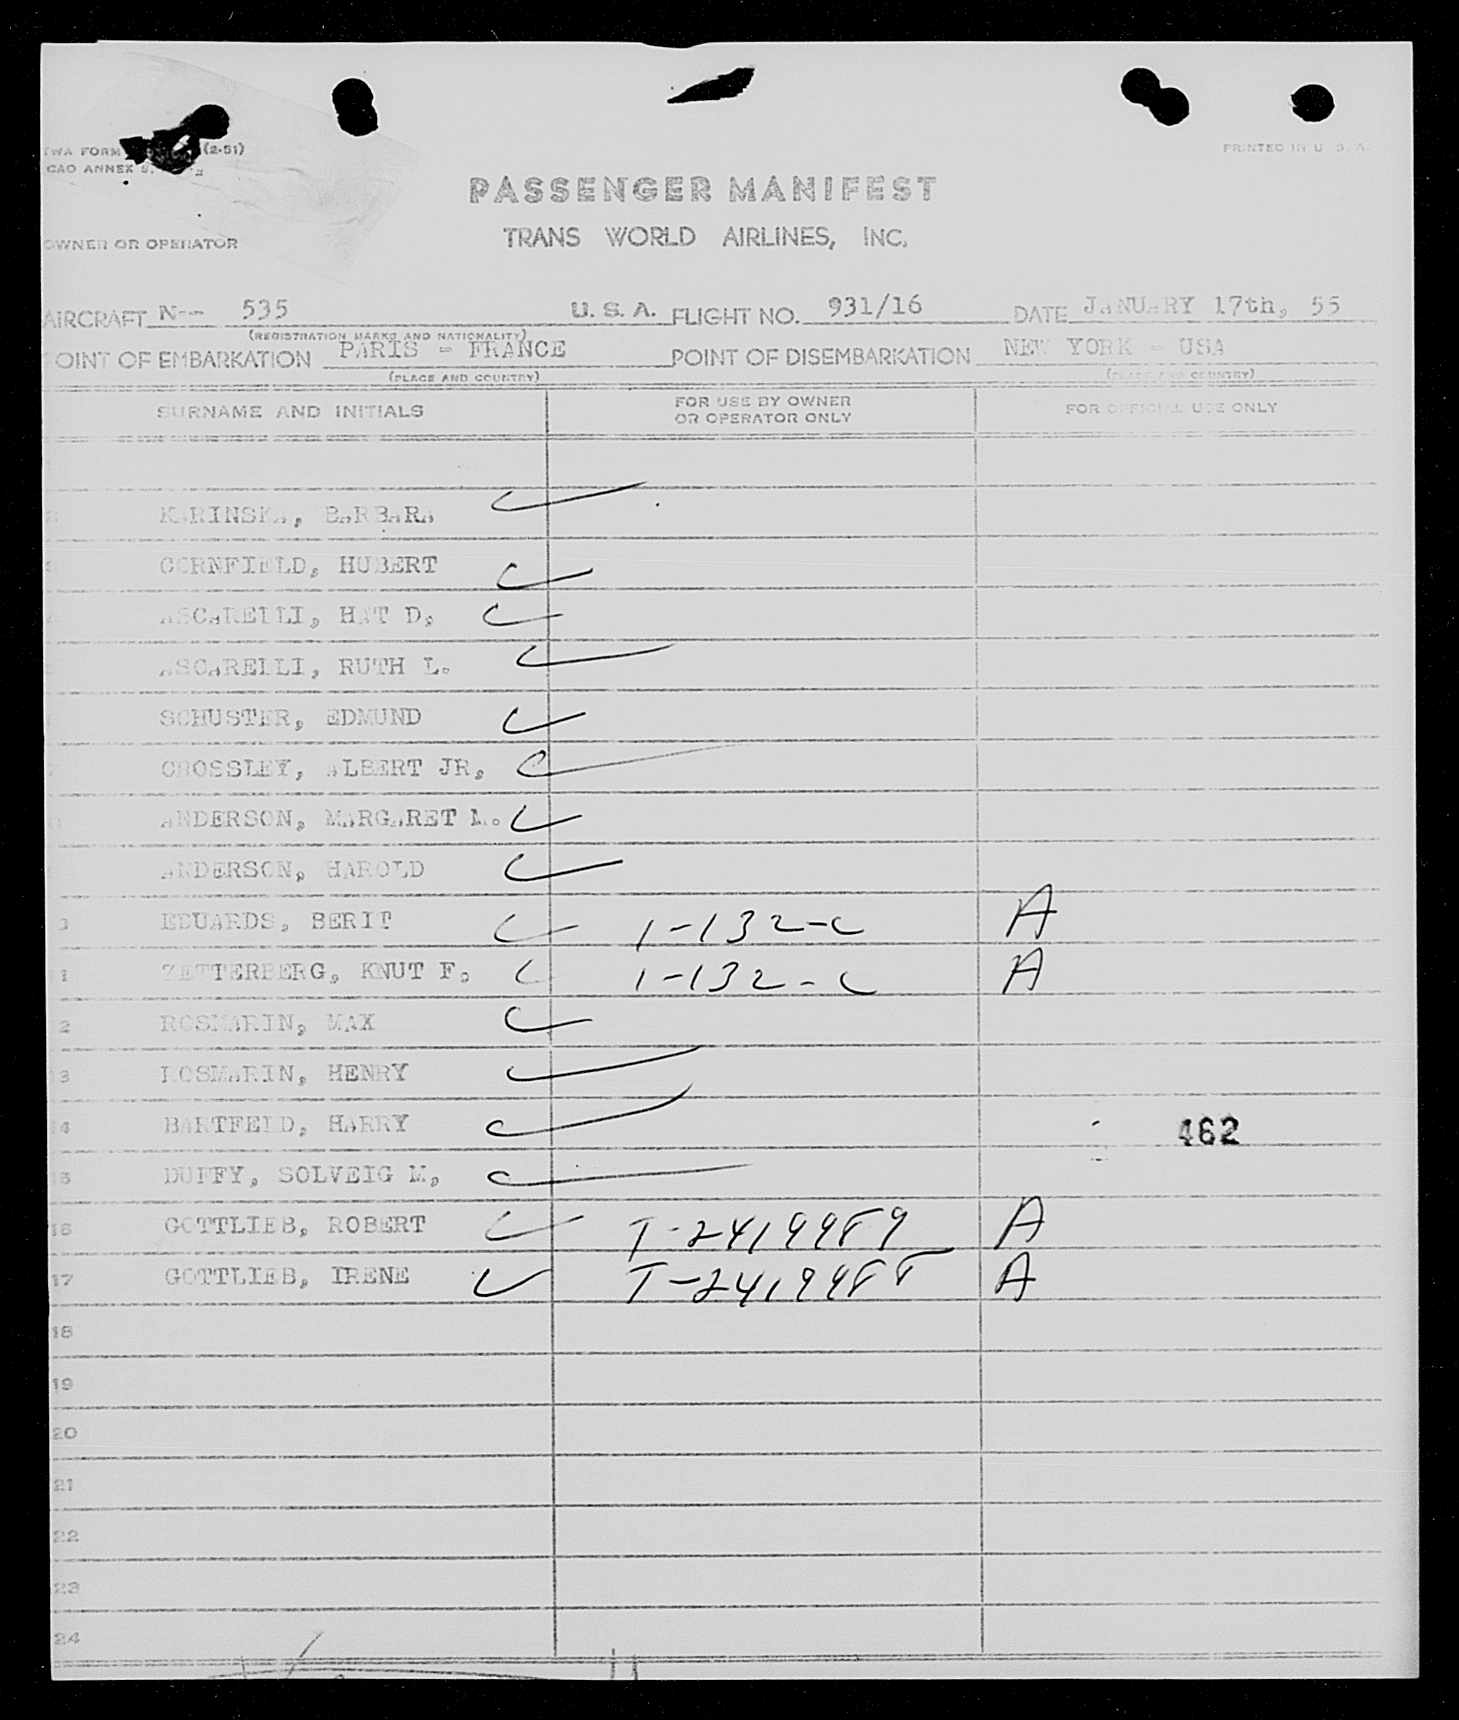 TWA FORM (2-51)
PRINTED IN U. S. A.
ICAO ANNEX 9,
PASSENGER MANIFEST
OWNER OR OPERATOR
TRANS WORLD AIRLINES, INC.
AIRCRAFT N-- 535 U. S. A. FLIGHT NO. 931/16 DATE JANUARY 17th, 55
(REGISTRATION MARKS AND NATIONALITY)
POINT OF EMBARKATION PARIS - FRANCE POINT OF DISEMBARKATION NEW YORK - USA
(PLACE AND COUNTRY) (PLACE AND COUNTRY)
SURNAME AND INITIALS FOR USE BY OWNER OR OPERATOR ONLY FOR OFFICIAL USE ONLY
KARINSKA, BARBARA
CORNFIELD, HUBERT
ASCARELLI, HAT D.
ASCARELLI, RUTH L.
SCHUSTER, EDMUND
CROSSLEY, ALBERT JR.
ANDERSON, MARGARET M.
ANDERSON, HAROLD
EDUARDS, BERIT 1-132-C A
ZETTERBERG, KNUT F. 1-132-C A
2 ROSMARIN, MAX
13 ROSMARIN, HENRY
14 BARTFELD, HARRY 462
15 DUFFY, SOLVEIG M.
16 GOTTLIEB, ROBERT T-2419989 A
17 GOTTLIEB, IRENE T-2419988 A
18
19
20
21
22
23
24